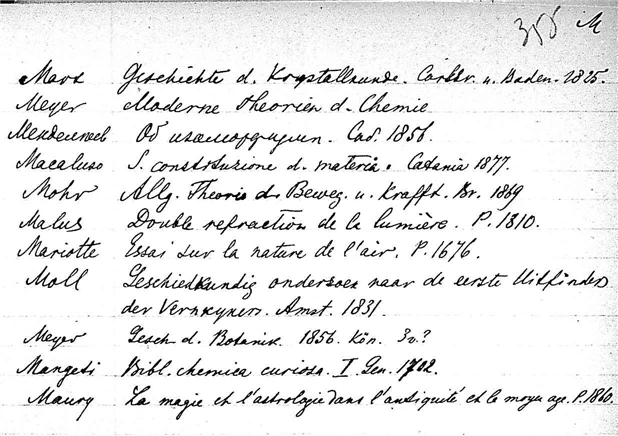 355 M
Marx Geschichte d. Krystallkunde. Carlsr. u. Baden. 1825.
Meyer Moderne Theorien d. Chemie
Менделеев Об изоморфизме. Спб. 1856.
Macaluso S. constituzione d. materia. Catania 1877.
Mohr Allg. Theorie d. Beweg. u. Krafft. Br. 1869
Malus Double refraction de la lumière. P. 1810.
Mariotte Essai sur la nature de l'air. P. 1676.
Moll Geschiedkundig onderzoek naar de eerste Uitfinders
der Vernkykers. Amst. 1831.
Meyer Gesch. d. Botanik. 1856. Kön. 3v.?
Mangeti Bibl. chemica curiosa. I Gen. 1702.
Maury La magie et l'astrologie dans l'antiquité et le moyen age. P. 1860.